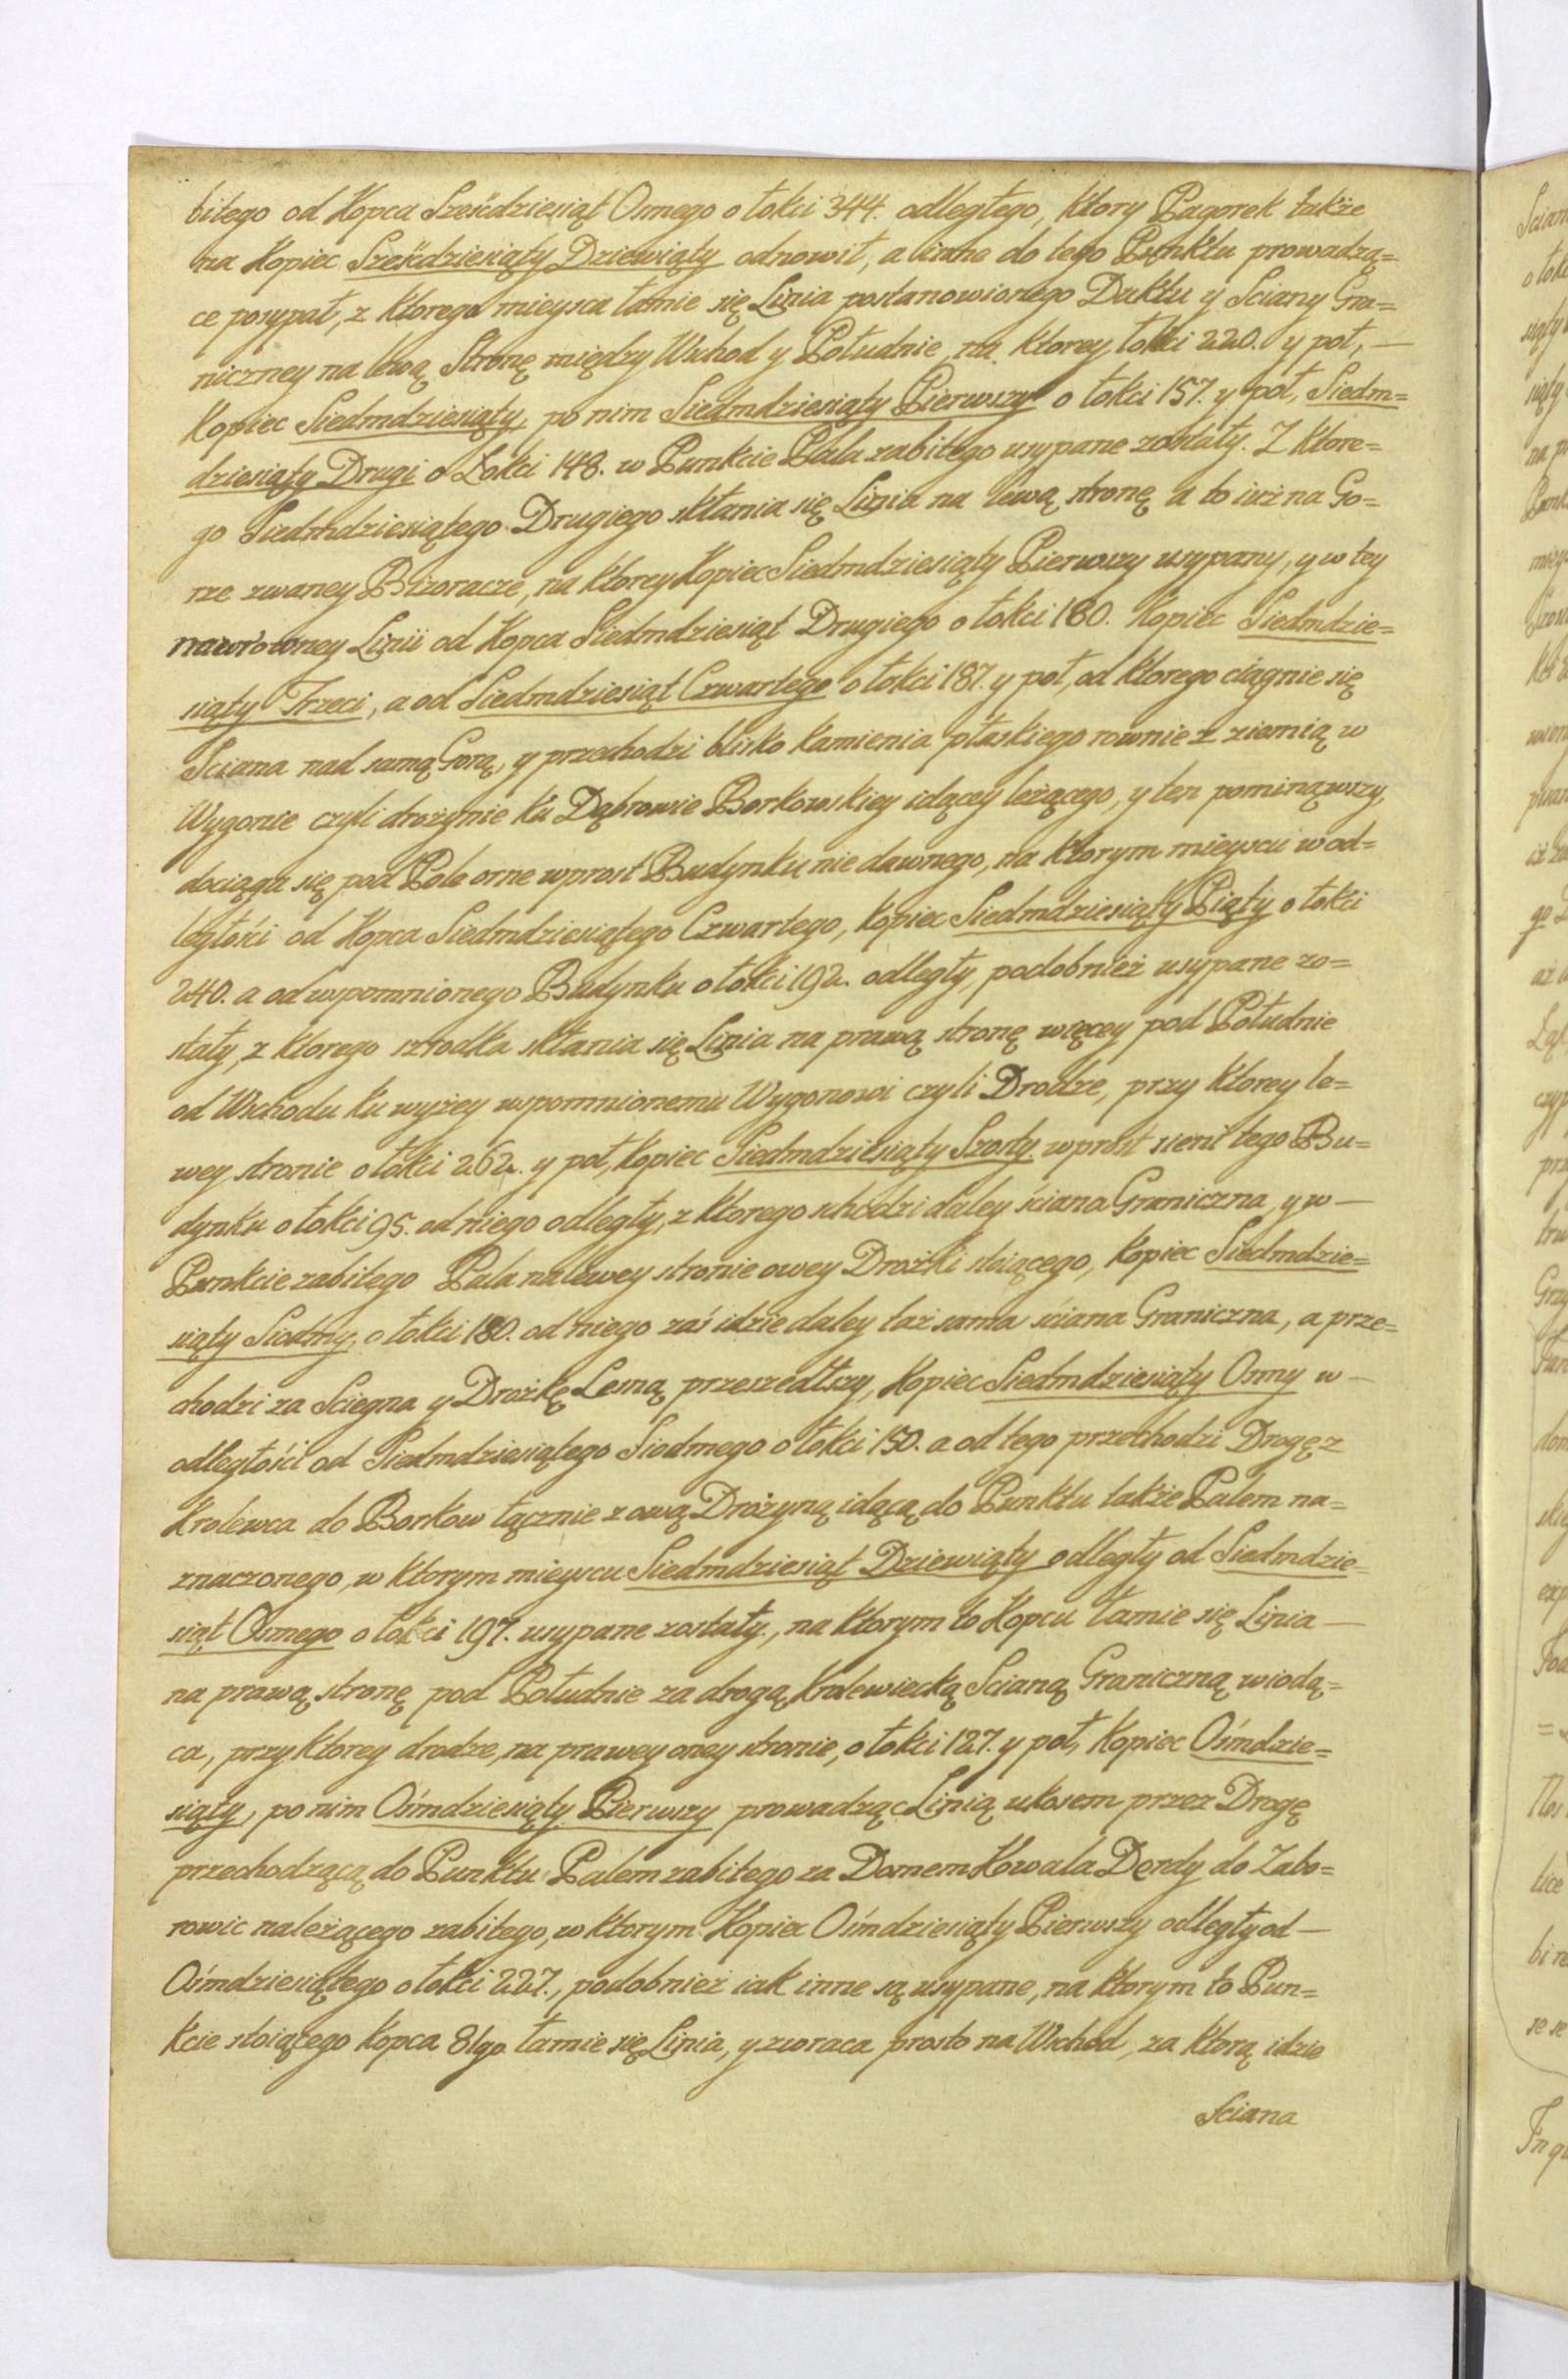 bitego od Kopca Sześćdziesiąt Osmego o łokci 344. odległego, ktory Pagorek także
na Kopiec Sześćdziesiąty Dziewiąty odnowił, a inne do tego Punktu prowadzą=
ce posypał, z ktorego mieysca łamie się Linia postanowionego Duktu y Sciany Gra=
niczney na lewą Stronę między Wschod y Południe, na ktorey łokci 220. y poł, —
Kopiec Siedmdziesiąty, po nim Siedmdziesiąty Pierwszy o łokci 157. y poł, Siedm=
dziesiąty Drugi o Łokci 148. w Punkcie Pala zabitego usypane zostały. Z ktore=
go Siedmdziesiątego Drugiego skłania się Linia na lewą stronę a to iuż na Go=
rze zwaney, na ktorey Kopiec Siedmdziesiąty Pierwszy usypany, y w tey
nawroconey Linii od Kopca Siedmdziesiąt Drugiego o łokci 180. Kopiec Siedmdzie=
siąty Trzeci, a od Siedmdziesiąt Czwartego o łokci 187. y poł, od ktorego ciągnie się
Sciana nad samą Gorą, y przechodzi blisko Kamienia płaskiego rownie z ziemią w
Wygonie czyli drożynie ku Dąbrowie Borkowskiey idącey leżącego, y ten pominąwszy,
dociąga się pod Pole orne wprost Budynku nie dawnego, na ktorym mieyscu w od=
ległości od Kopca Siedmdziesiątego Czwartego, Kopiec Siedmdziesiąty Piąty o łokci
240. a od wspomnionego Budynku o łokci 192. odległy, podobnież usypane zo=
stały, z ktorego szrodka skłania się Linia na prawą stronę więcey pod Południe
od Wschodu ku wyżey wspomnionemu Wygonowi czyli Drodze, przy ktorey le=
wey stronie o łokci 262. y poł, Kopiec Siedmdziesiąty Szosty wprost sieni tego Bu=
dynku o łokci 95. od niego odległy, z ktorego schodzi daley sciana Graniczna, y w —
Punkcie zabitego Pala na lewey stronie owey Drożki stoiącego, Kopiec Siedmdzie=
siąty Siodmy, o łokci 180. od niego zaś idzie daley taż sama sciana Graniczna, a prze=
chodzi za Sciegna y Drożkę Lesną przeszedłszy, Kopiec Siedmdziesiąty Osmy w —
odległości od Siedmdziesiątego Siodmego o łokci 150. a od tego przechodzi Drogę z
Krolewca do Borkow łącznie z ową Drożyną idącą do Punktu także Palem na=
znaczonego, w ktorym mieyscu Siedmdziesiąt Dziewiąty odległy od Siedmdzie=
siąt Osmego o łokci 197. usypane zostały, na ktorym to Kopcu łamie się Linia —
na prawą stronę pod Południe za drogą Krolewiecką Scianą Graniczną wiodą=
ca, przy ktorey drodze, na prawey oney stronie, o łokci 127. y poł, Kopiec Ośmdzie=
siąty, po nim Ośmdziesiąty Pierwszy prowadząc Linią ukosem przez Drogę
przechodzącą do Punktu Palem zabitego za Domem Kowala Derdy do Zabo=
rowic należącego zabitego, w ktorym Kopiec Ośmdziesiąty Pierwszy odległy od —
Ośmdziesiątego o łokci 227., podobnież iak inne są usypane, na ktorym to Pun=
kcie stoiącego Kopca 81go. łamie się Linia, y zwraca prosto na Wschod, za ktorą idzie
Sciana